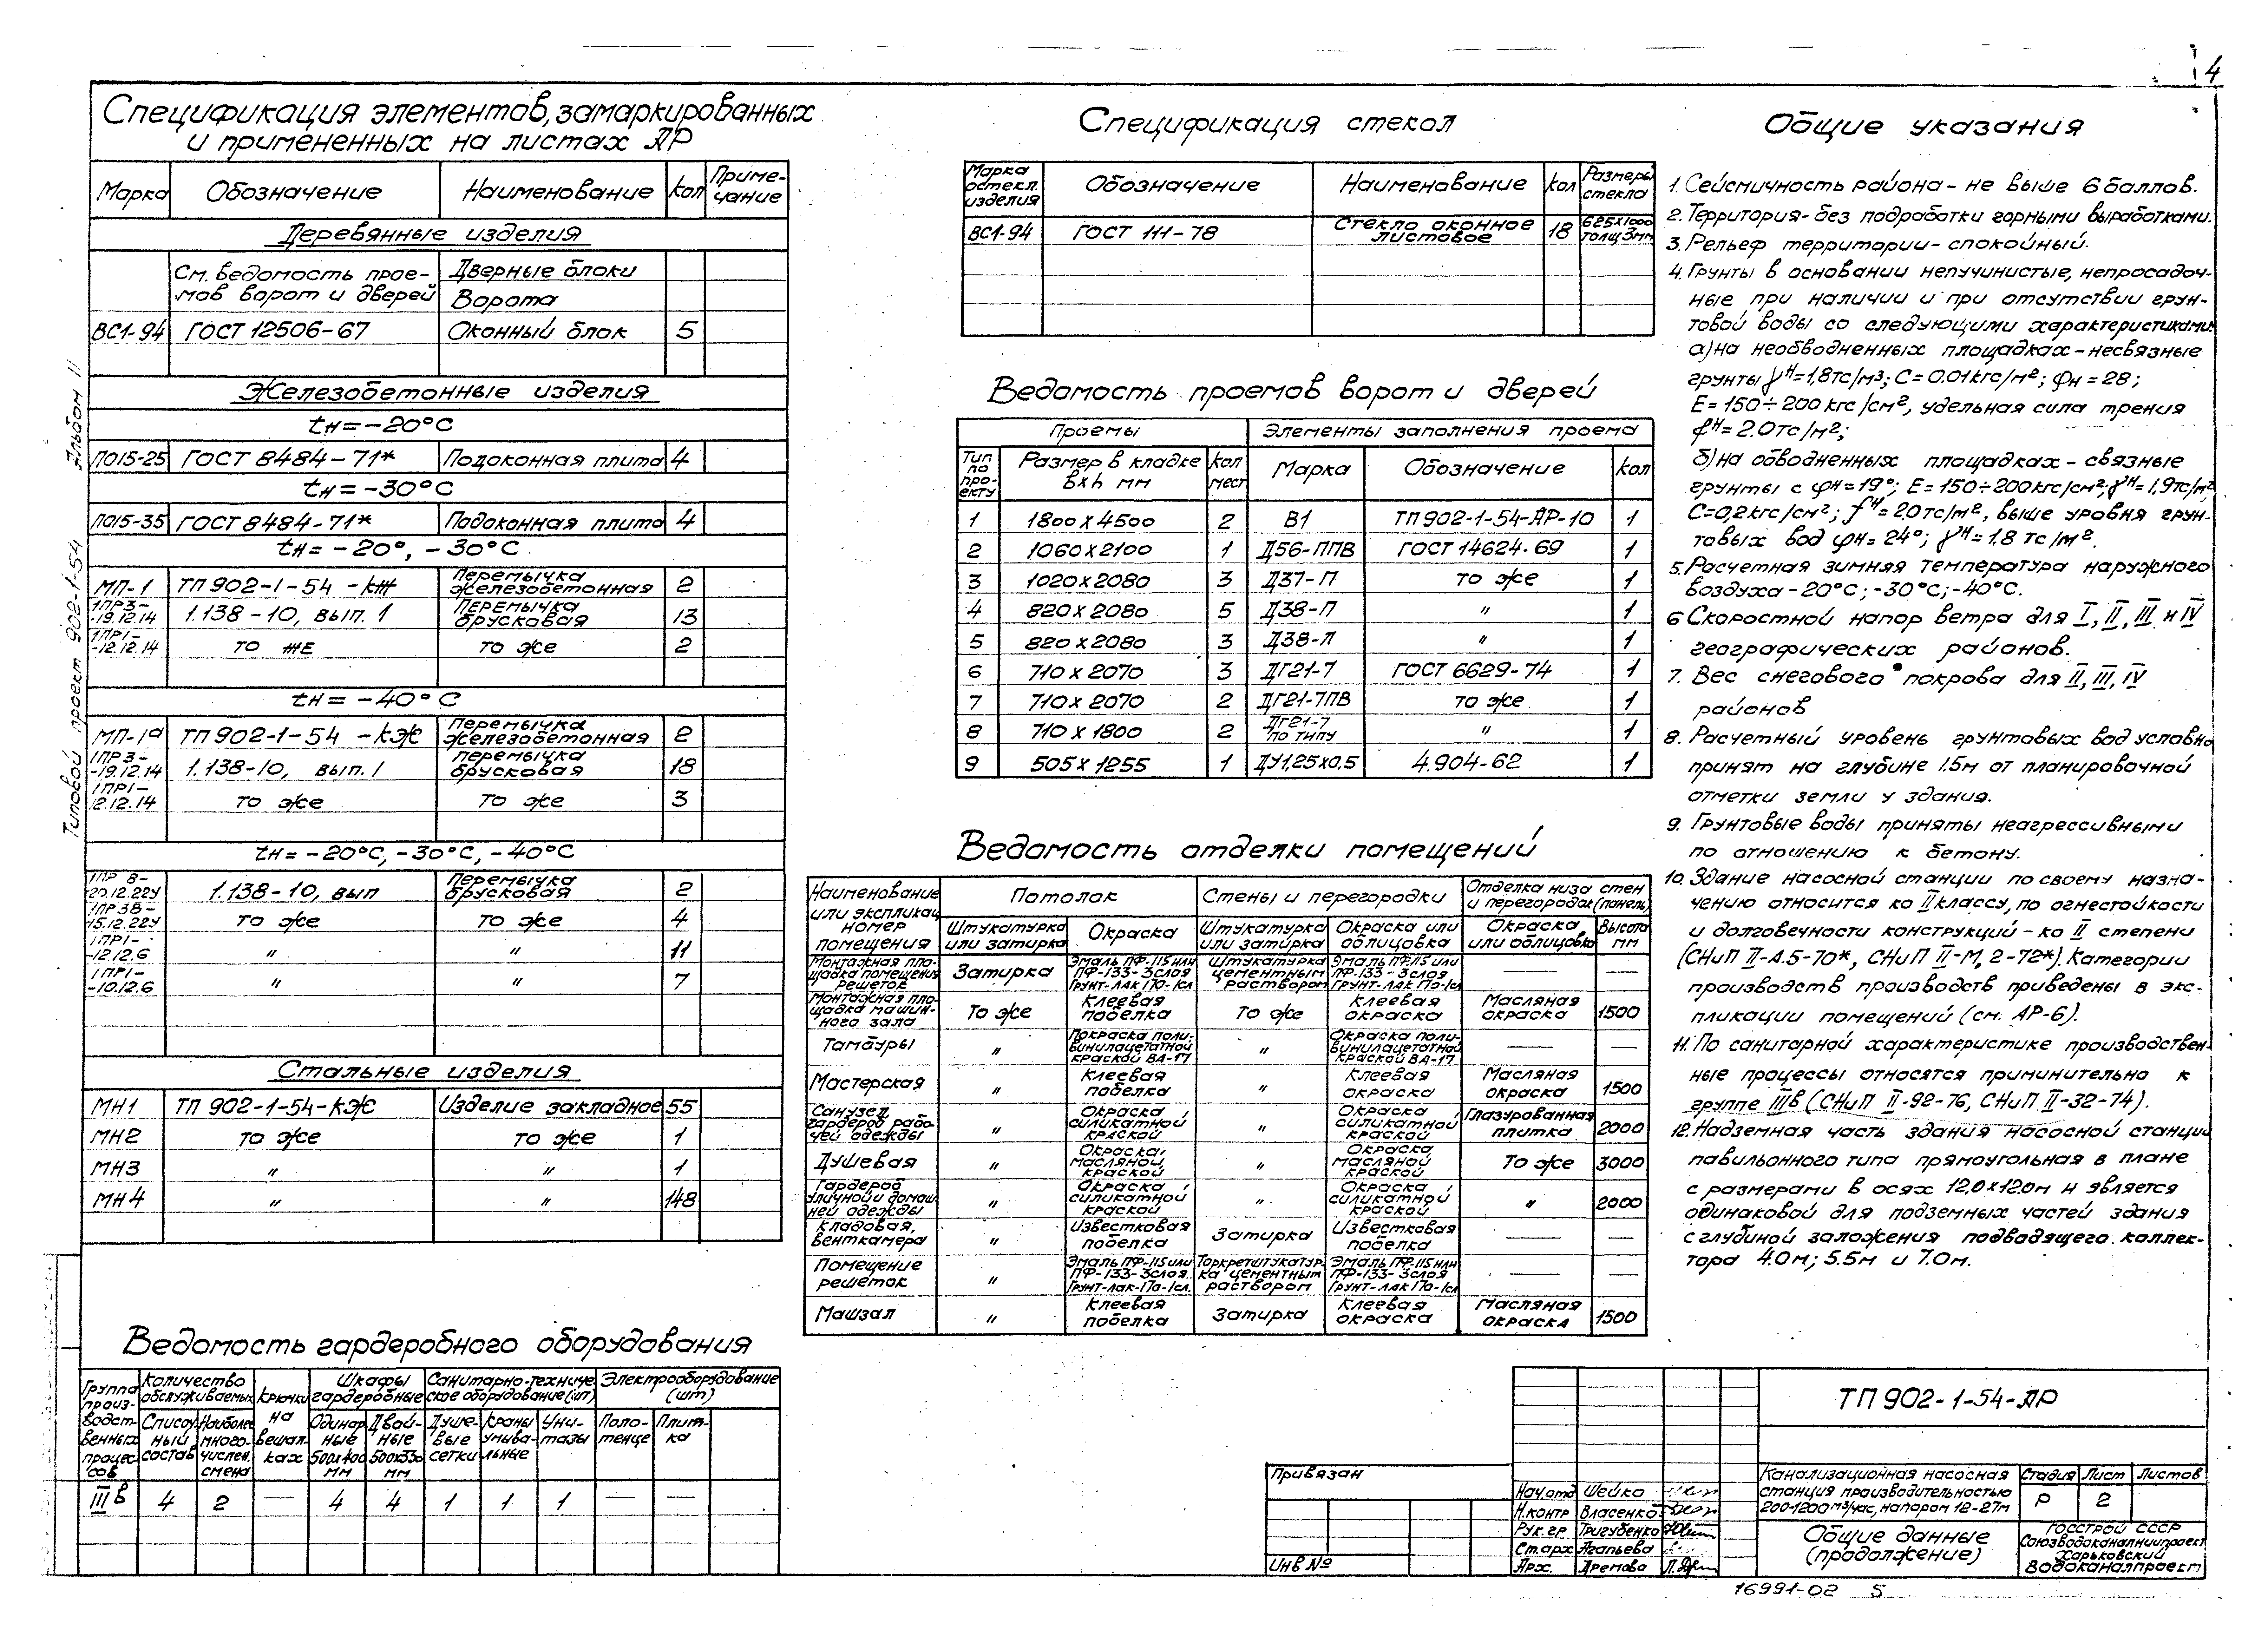 4
Спецификация элементов, замаркированных
и примененных на листах АР
Марка Обозначение Наименование Кол Приме-
чание
Деревянные изделия
См. ведомость прое-
мов ворот и дверей
Дверные блоки
Ворота
ВС1-94 ГОСТ 12506-67 Оконный блок 5
Железобетонные изделия
tн=-20°С
ПО15-25 ГОСТ 8484-71* Подоконная плита 4
tн=-30°С
ПО15-35 ГОСТ 8484-71* Подоконная плита 4
tн=-20°, -30°С
МП-1 ТП 902-1-54 -КЖ Перемычка железобетонная 2
1ПР3-19.12.14 1.138-10, вып. 1 Перемычка брусковая 13
1ПР1-12.12.14 то же то же 2
tн=-40°С
МП-1а ТП 902-1-54 -КЖ Перемычка железобетонная 2
1ПР3-19.12.14 1.138-10, вып. 1 перемычка брусковая 18
1ПР1-12.12.14 то же то же 3
tн=-20°С, -30°С, -40°С
1ПР8-20.12.22У 1.138-10, вып Перемычка брусковая 2
1ПР38-15.12.22У то же то же 4
1ПР1-12.12.6 " " 11
1ПР1-10.12.6 " " 7
Стальные изделия
МН1 ТП 902-1-54-КЖ Изделие закладное 55
МН2 то же то же 1
МН3 " " 1
МН4 " " 148
Ведомость гардеробного оборудования
Группа произ-водст-венных процес-сов
Количество обслуживаемых
Списоч-ный состав
Наиболее много-числен. смена
Крючки на вешал-ках
Шкафы гардеробные
Одинар-ные 500х400 мм
Двой-ные 500х330 мм
Санитарно-техниче-ское оборудование (шт)
Душе-вые сетки
Краны умыва-льные
Уни-тазы
Электрооборудование (шт)
Поло-тенце
Плит-ка
IIIв 4 2 — 4 4 1 1 1 — —
Спецификация стекол
Марка остекл. изделия Обозначение Наименование Кол Размеры стекла
ВС1-94 ГОСТ 111-78 Стекло оконное листовое 18 685х1000 толщ 3мм
Ведомость проемов ворот и дверей
Проемы Элементы заполнения проема
Тип по про-екту Размер в кладке вхh мм Кол мест Марка Обозначение Кол
1 1800х4500 2 В1 ТП 902-1-54-АР-10 1
2 1060х2100 1 Д56-ППВ ГОСТ 14624-69 1
3 1020х2080 3 Д37-П то же 1
4 820х2080 5 Д38-П " 1
5 820х2080 3 Д38-Л " 1
6 710х2070 3 ДГ21-7 ГОСТ 6629-74 1
7 710х2070 2 ДГ21-7ПВ то же 1
8 710х1800 2 ДГ21-7 по типу " 1
9 505х1255 1 ДУ1,25х0,5 4.904-62 1
Ведомость отделки помещений
Наименование или экспликац. номер помещения
Потолок Стены и перегородки Отделка низа стен и перегородок (панель)
Штукатурка или затирка Окраска Штукатурка или затирка Окраска или облицовка Окраска или облицовка Высота мм
Монтажная пло-щадка помещения решеток Затирка Эмаль ПФ-115 или ПФ-133-3слоя Грунт-лак 170-1сл Штукатурка цементным раствором Эмаль ПФ-115 или ПФ-133-3слоя Грунт-лак 170-1сл — —
Монтажная пло-щадка машин-ного зала То же Клеевая побелка То же Клеевая окраска Масляная окраска 1500
Тамбуры " Покраска поли-винилацетатной краской ВА-17 " Окраска поли-винилацетатной краской ВА-17 — —
Мастерская " Клеевая побелка " Клеевая окраска Масляная окраска 1500
Санузел, гардероб рабо-чей одежды " Окраска силикатной краской " Окраска силикатной краской Глазурованная плитка 2000
Душевая " Окраска масляной краской " Окраска масляной краской То же 3000
Гардероб уличной и домаш-ней одежды " Окраска силикатной краской " Окраска силикатной краской " 2000
Кладовая, венткамера " Известковая побелка Затирка Известковая побелка — —
Помещение решеток " Эмаль ПФ-115 или ПФ-133-3слоя Грунт-лак-170-1сл. Торкретштукатур-ка цементным раствором Эмаль ПФ-115 или ПФ-133-3слоя Грунт-лак 170-1сл — —
Машзал " Клеевая побелка Затирка Клеевая окраска Масляная окраска 1500
Общие указания
1. Сейсмичность района - не выше 6 баллов.
2. Территория - без подработки горными выработками.
3. Рельеф территории - спокойный.
4. Грунты в основании непучинистые, непросадоч-
ные при наличии и при отсутствии грун-
товой воды со следующими характеристиками:
а) на необводненных площадках - несвязные
грунты γᴴ=1,8тс/м³; С=0.01кгс/м²; φн=28;
Е=150÷200 кгс/см², удельная сила трения
fᴴ=2.0тс/м²;
б) на обводненных площадках - связные
грунты с φн=19°; Е=150÷200кгс/см²; γᴴ=1,9тс/м²
С=0,2кгс/см²; fᴴ=2.0тс/м², выше уровня грун-
товых вод φн=24°; γᴴ=1.8 тс/м².
5. Расчетная зимняя температура наружного
воздуха -20°С; -30°С; -40°С.
6 Скоростной напор ветра для I, II, III и IV
географических районов.
7. Вес снегового покрова для II, III, IV
районов
8. Расчетный уровень грунтовых вод условно
принят на глубине 1.5м от планировочной
отметки земли у здания.
9. Грунтовые воды приняты неагрессивными
по отношению к бетону.
10. Здание насосной станции по своему назна-
чению относится ко II классу, по огнестойкости
и долговечности конструкций - ко II степени
(СНиП II-А.5-70*, СНиП II-М.2-72*). Категории
производств производств приведены в экс-
пликации помещений (см. АР-6).
11. По санитарной характеристике производствен-
ные процессы относятся приминительно к
группе IIIв (СНиП II-92-76, СНиП II-32-74).
12. Надземная часть здания насосной станции
павильонного типа прямоугольная в плане
с размерами в осях 12.0х12.0м и является
одинаковой для подземных частей здания
с глубиной заложения подводящего коллек-
тора 4.0м; 5.5м и 7.0м.
Привязан
Инв №
Нач.отд Шейко
Н.контр Власенко
Рук.гр Тригубенко
Ст.арх Агапьева
Арх. Дремова
ТП 902-1-54-АР
Канализационная насосная
станция производительностью
200-1200 м³/час, напором 12-27м
Стадия Лист Листов
Р 2
Общие данные
(продолжение)
Госстрой СССР
Союзводоканалниипроект
Харьковский
Водоканалпроект
16991-02 5
Типовой проект 902-1-54 Альбом II